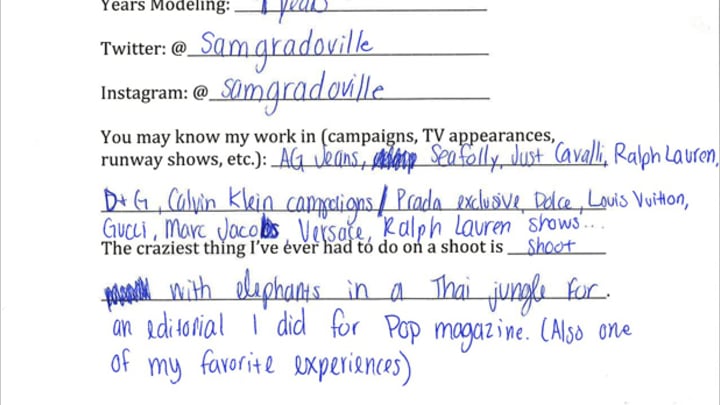 Years Modeling: 7 years
Twitter: @ Samgradoville
Instagram: @ samgradoville
You may know my work in (campaigns, TV appearances,
runway shows, etc.): AG Jeans, Seafolly, Just Cavalli, Ralph Lauren,
D+G, Calvin Klein campaigns / Prada exclusive, Dolce, Louis Vuitton,
Gucci, Marc Jacobs, Versace, Ralph Lauren shows...
The craziest thing I've ever had to do on a shoot is shoot
with elephants in a Thai jungle for
an editorial I did for Pop magazine. (Also one
of my favorite experiences)